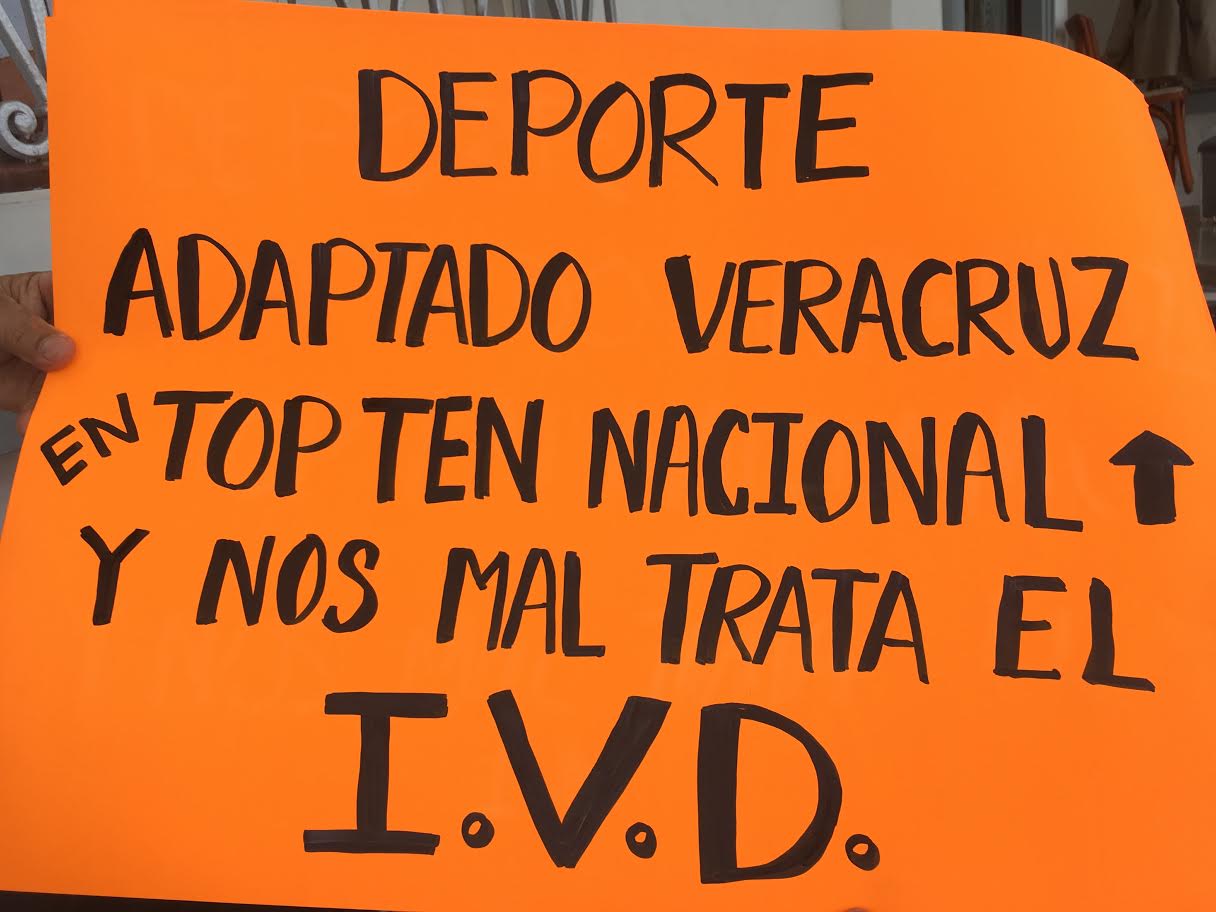 DEPORTE
ADAPTADO VERACRUZ
EN TOP TEN NACIONAL ⬆
Y NOS MAL TRATA EL
I.V.D.